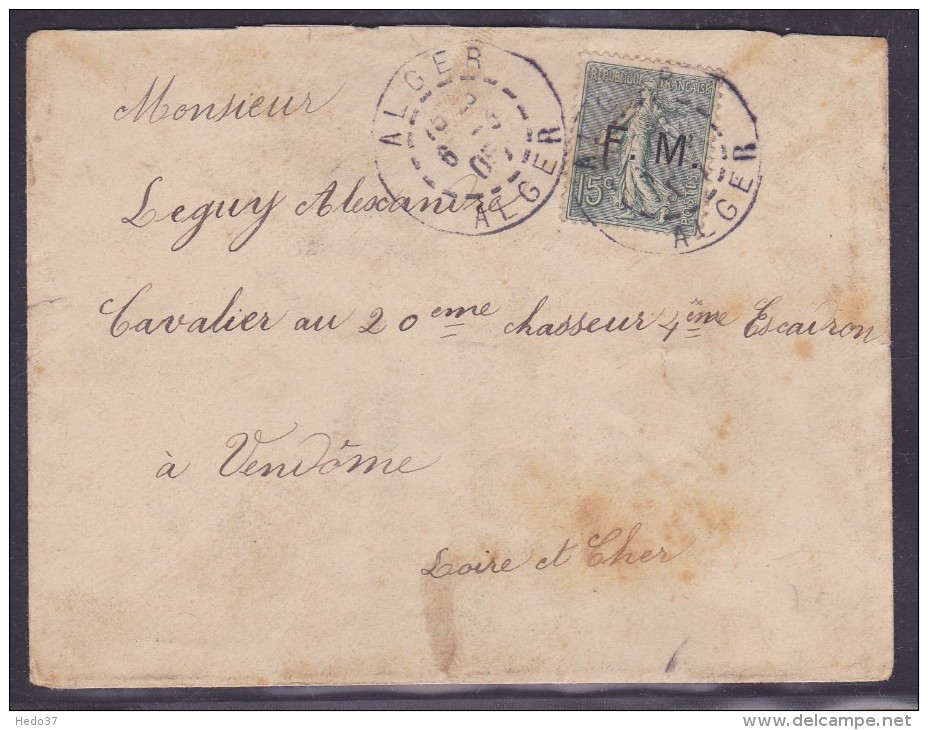 ALGER
ALGER
RÉPUBLIQUE FRANÇAISE
F. M.
15c
POSTES
ALGER
Monsieur
Leguy Alexandre
Cavalier au 20eme chasseur 4ème Escadron
à Vendôme
Loire et Cher
Hedo37
www.delcampe.net